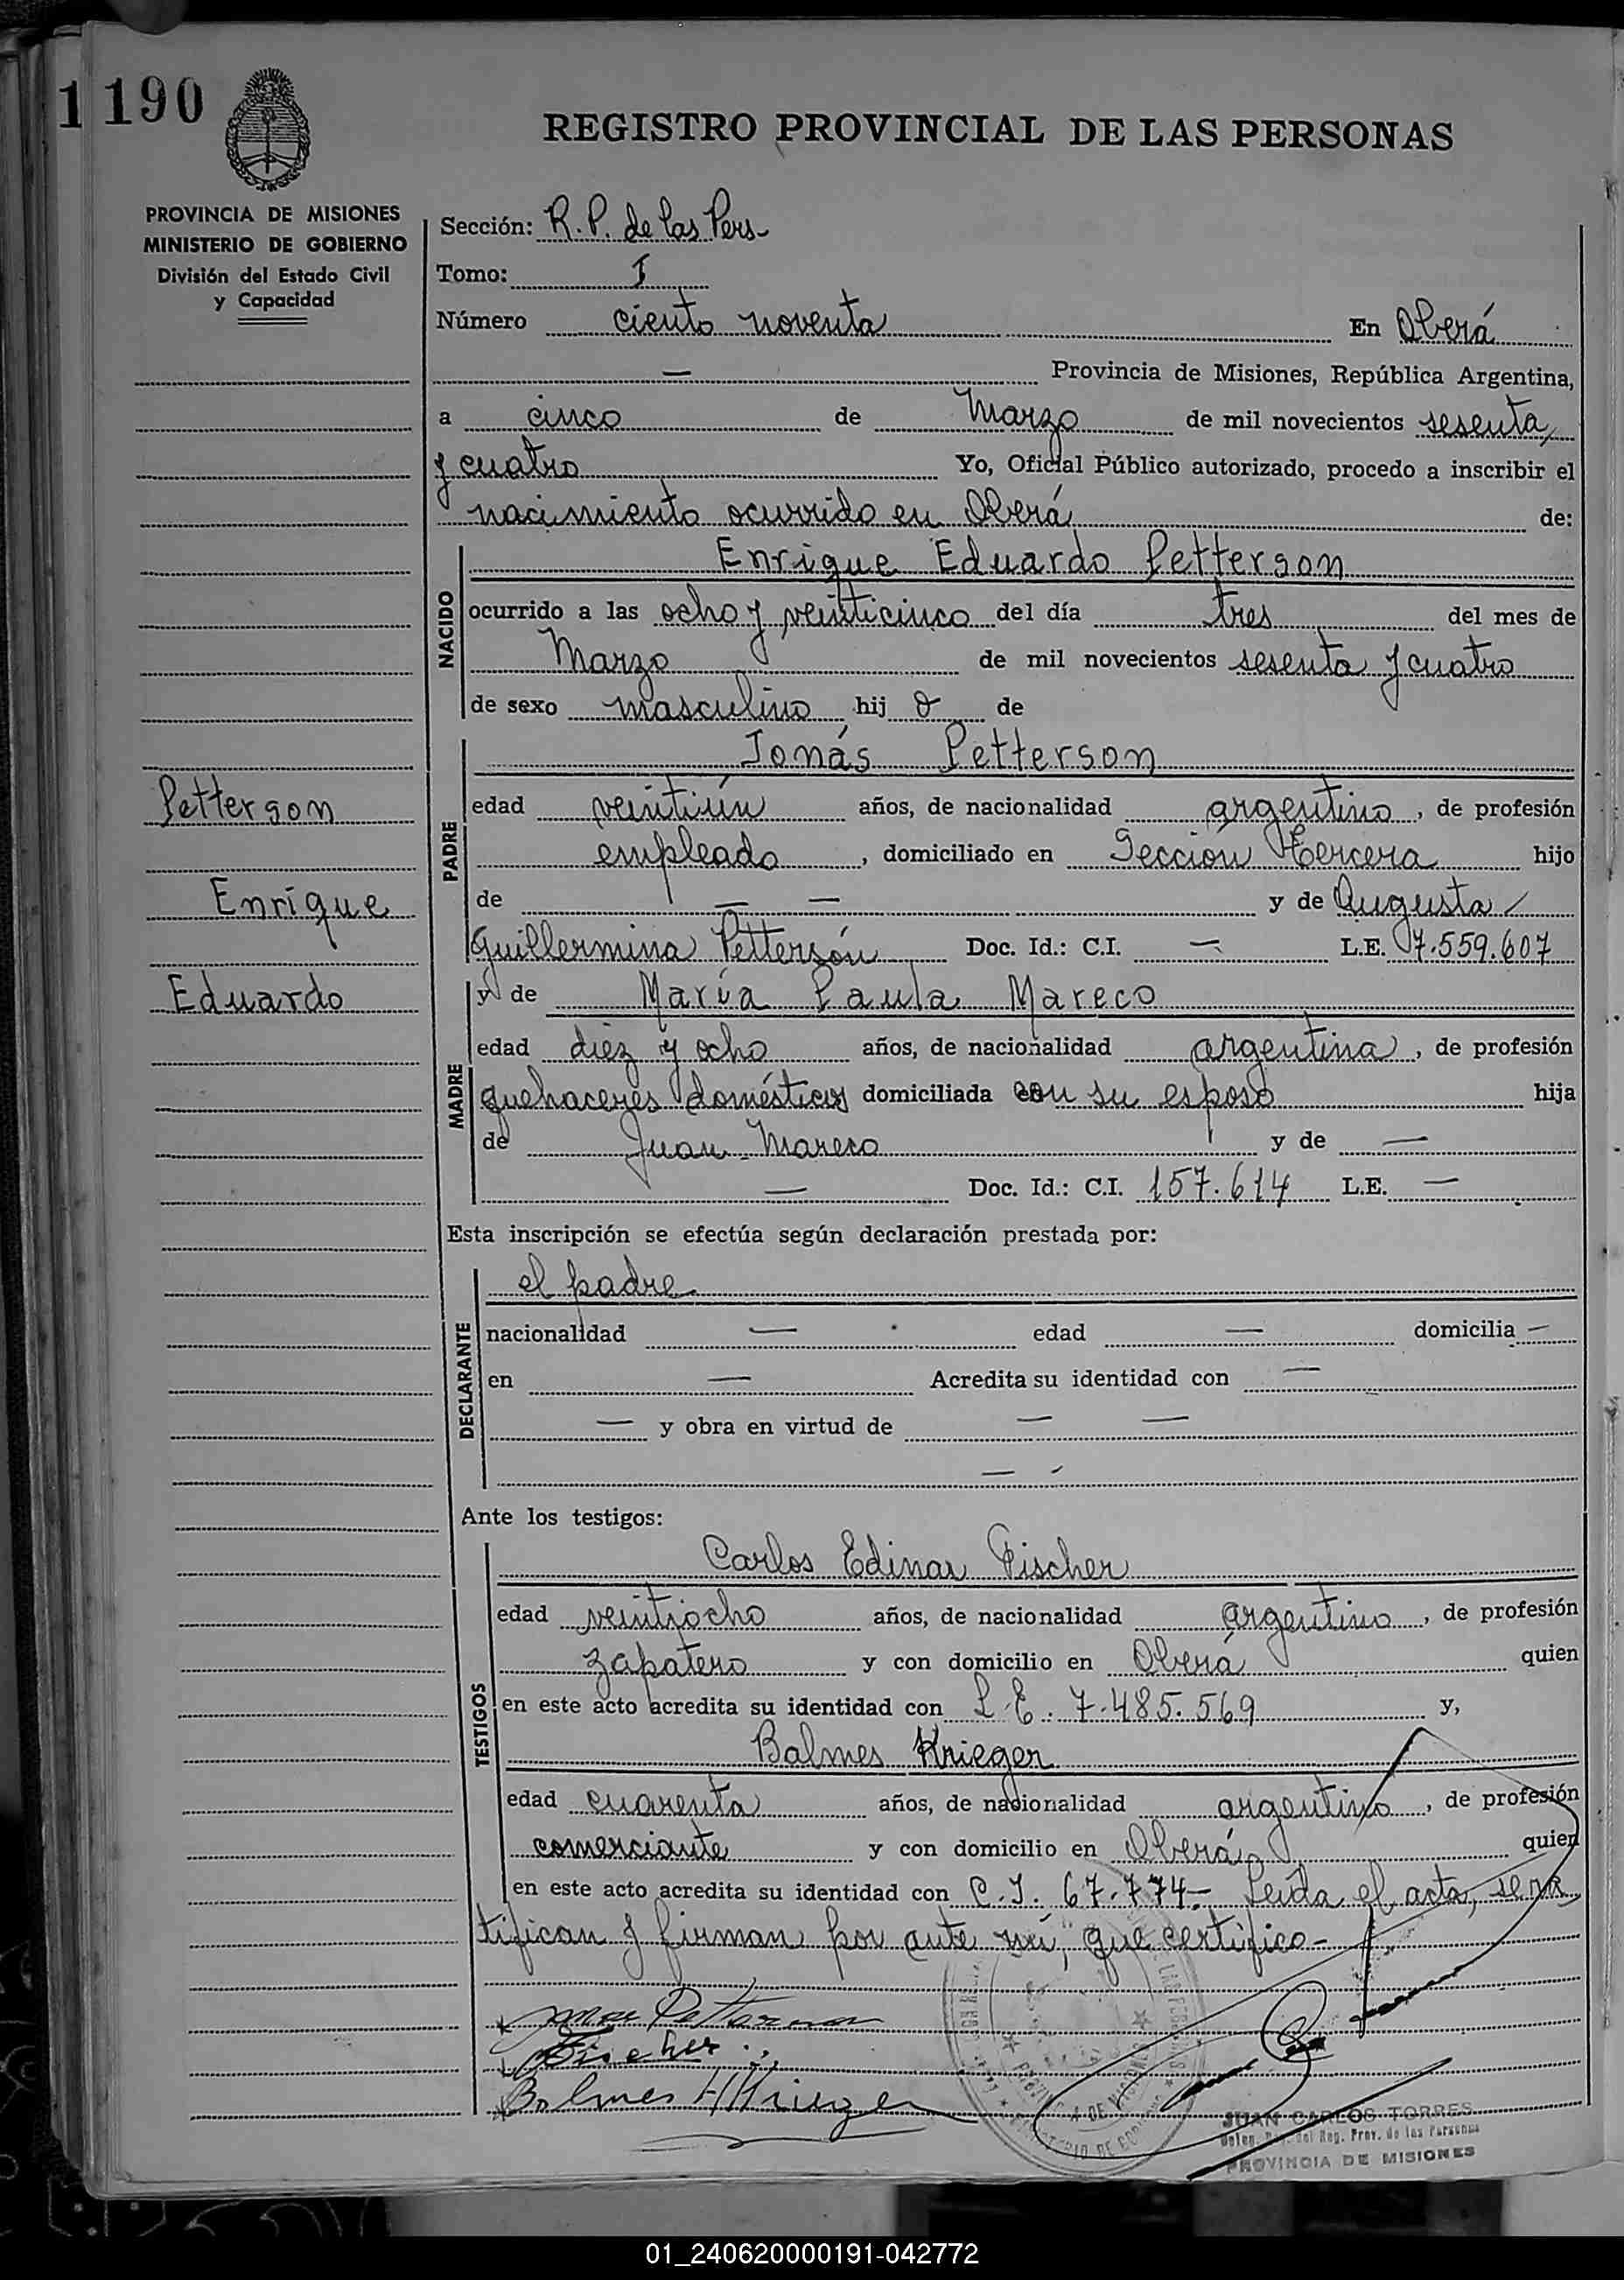 1 190
REGISTRO PROVINCIAL DE LAS PERSONAS
PROVINCIA DE MISIONES
MINISTERIO DE GOBIERNO
División del Estado Civil
y Capacidad
Sección: R.P. de las Pers-
Tomo: I
Número ciento noventa En Oberá
— Provincia de Misiones, República Argentina,
a cinco de Marzo de mil novecientos sesenta
y cuatro Yo, Oficial Público autorizado, procedo a inscribir el
nacimiento ocurrido en Oberá de:
NACIDO
Enrique Eduardo Petterson
ocurrido a las ocho y veinticinco del día tres del mes de
Marzo de mil novecientos sesenta y cuatro
de sexo masculino hij o de
PADRE
Jonás Petterson
Petterson
Enrique
Eduardo
edad veintiún años, de nacionalidad argentino, de profesión
empleado, domiciliado en Sección Tercera hijo
de — — y de Augusta
Guillermina Pettersón Doc. Id.: C.I. — L.E. 7.559.607
MADRE
y de María Paula Mareco
edad diez y ocho años, de nacionalidad argentina, de profesión
quehaceres domésticos domiciliada con su esposo hija
de Juan Mareco y de —
— Doc. Id.: C.I. 157.614 L.E. —
Esta inscripción se efectúa según declaración prestada por:
DECLARANTE
el padre
nacionalidad — edad — domicilia —
en — Acredita su identidad con —
— y obra en virtud de — —
—
Ante los testigos:
TESTIGOS
Carlos Edinar Fischer
edad veintiocho años, de nacionalidad argentino, de profesión
zapatero y con domicilio en Oberá quien
en este acto acredita su identidad con L.E. 7.485.569 y,
Balmes Krieger
edad cuarenta años, de nacionalidad argentino, de profesión
comerciante y con domicilio en Oberá quien
en este acto acredita su identidad con C.I. 67.774- Leída el acta, se ra
tifican y firman por ante mí, que certifico-
Petterson
Fischer
Balmes Krieger
JUAN CARLOS TORRES
del Reg. Prov. de las Personas
PROVINCIA DE MISIONES
01_240620000191-042772